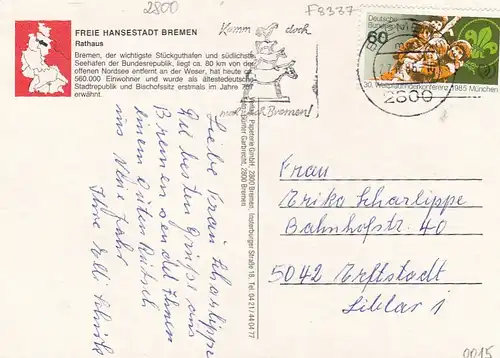 2800
F8337
FREIE HANSESTADT BREMEN
Rathaus
Bremen, der wichtigste Stückguthafen und südlichste
Seehafen der Bundesrepublik, liegt ca. 80 km von der
offenen Nordsee entfernt an der Weser, hat heute ca.
560.000 Einwohner und wurde als ältestdeutsche
Stadtrepublik und Bischofssitz erstmals im Jahre 787
erwähnt.
Komm doch
mal nach Bremen!
Deutsche
Bundespost
60
30. Weltpfadfinderkonferenz 1985 München
2800
Liebe Frau Scharlippe
Die besten Grüße aus
Bremen sendet Ihnen
einen guten Rutsch
ins Neue Jahr
Ihre Elli
Papeterie GmbH, 2800 Bremen, Insterburger Straße 18, Tel. 04 21/44 04 77
Gunter Garbrecht, 2800 Bremen
Frau
Erika Scharlippe
Bahnhofstr. 40
5042 Erftstadt
Liblar 1
0015